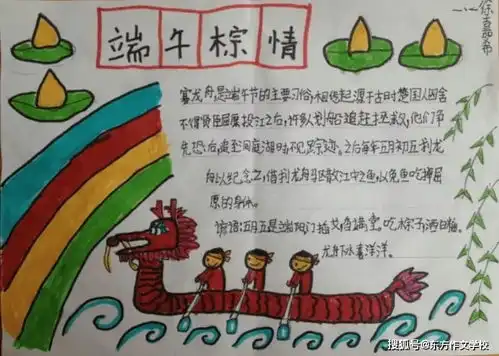 端午棕情
一(一)徐
赛龙舟,是端午节的主要习俗,相传起源于古时楚国人因舍
不得贤臣屈原投江之后,许多人划船追赶拯救,他们争
先恐后,追至洞庭湖时不见踪迹。之后每年五月初五划龙
舟以纪念之,借划龙舟驱散江中之鱼,以免鱼吃掉屈
原的身体。
谚语:五月五是端阳门插艾,香满堂。吃粽子,洒白糖。
龙舟下水喜洋洋。
搜狐号@东方作文学校